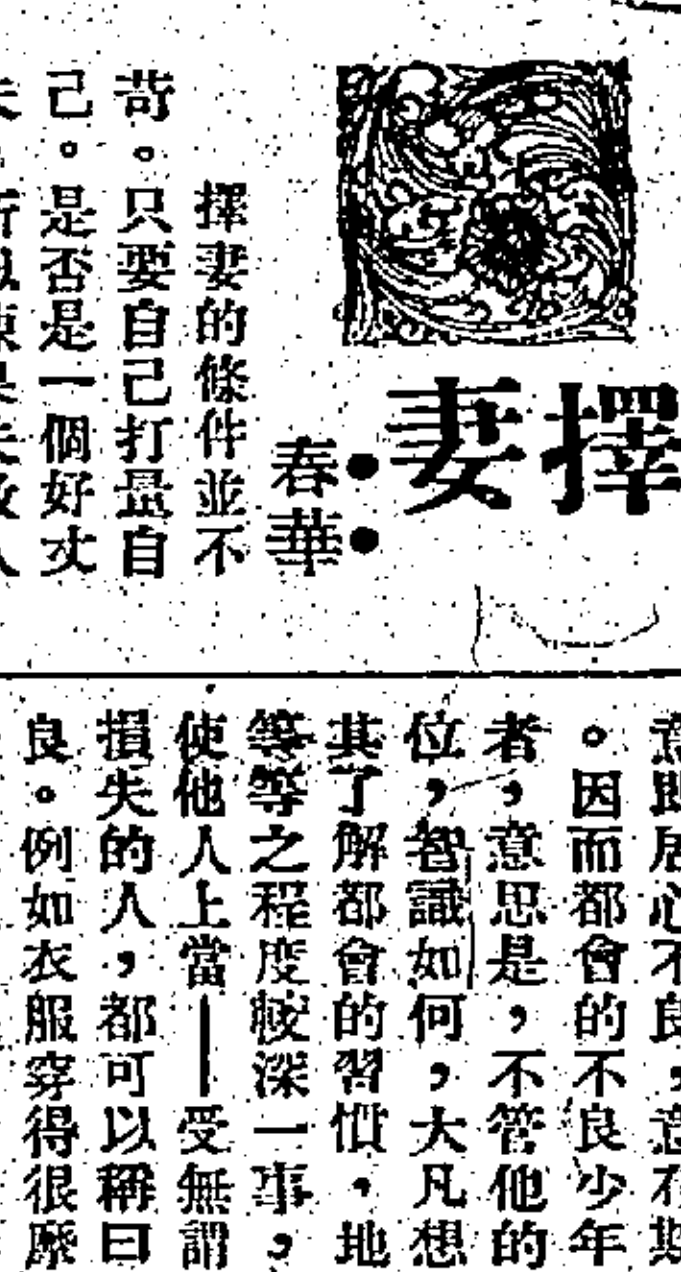 擇妻
春華
擇妻的條件並不
苛。只要自己打量自
己。是否是一個好丈
意即居心不良，意在欺
。因而都會的不良少年
者，意思是，不管他的
位，智識如何，大凡想
其了解都會的習慣，地
等等之程度較深一事，
使他人上當——受無謂
損失的人，都可以稱曰
良。例如衣服穿得很麽